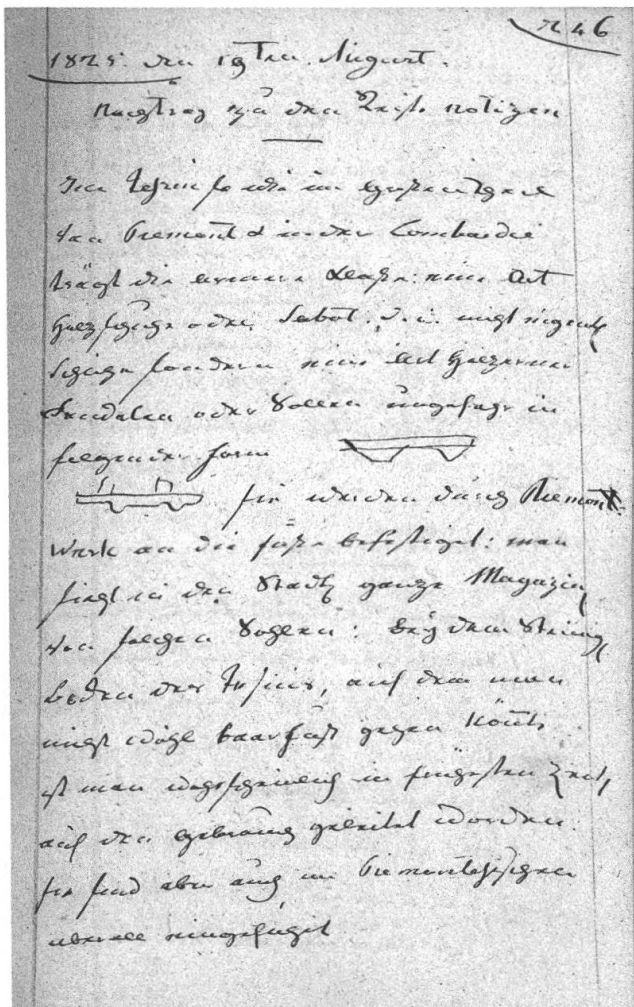 246
1825. den 19ten August.
Nachtrag zu den Reise notizen
Im Tessin so wie im großen Theil
von Piemont & in der Lombardie
trägt die ärmere Classe eine Art
Holzschuhe oder Sabot, d. i. nicht eigentl
Schuhe sondern eine Art hölzerner
Sandalen oder Sollen ungefähr in
folgender Form
sie werden durch Riemen
Werk an die Füße befestiget: man
sieht in den Städtz ganze Magazin
von solchen Sohlen: Bey dem Steinig
Boden des Tessins, auf dem man
nicht wohl baarfuß gehen könte
ist man wahrscheinlich in frühesten Zeit
auf den Gebrauch geleitet worden.
sie sind aber auch im Piemontesischen
überall eingeführt